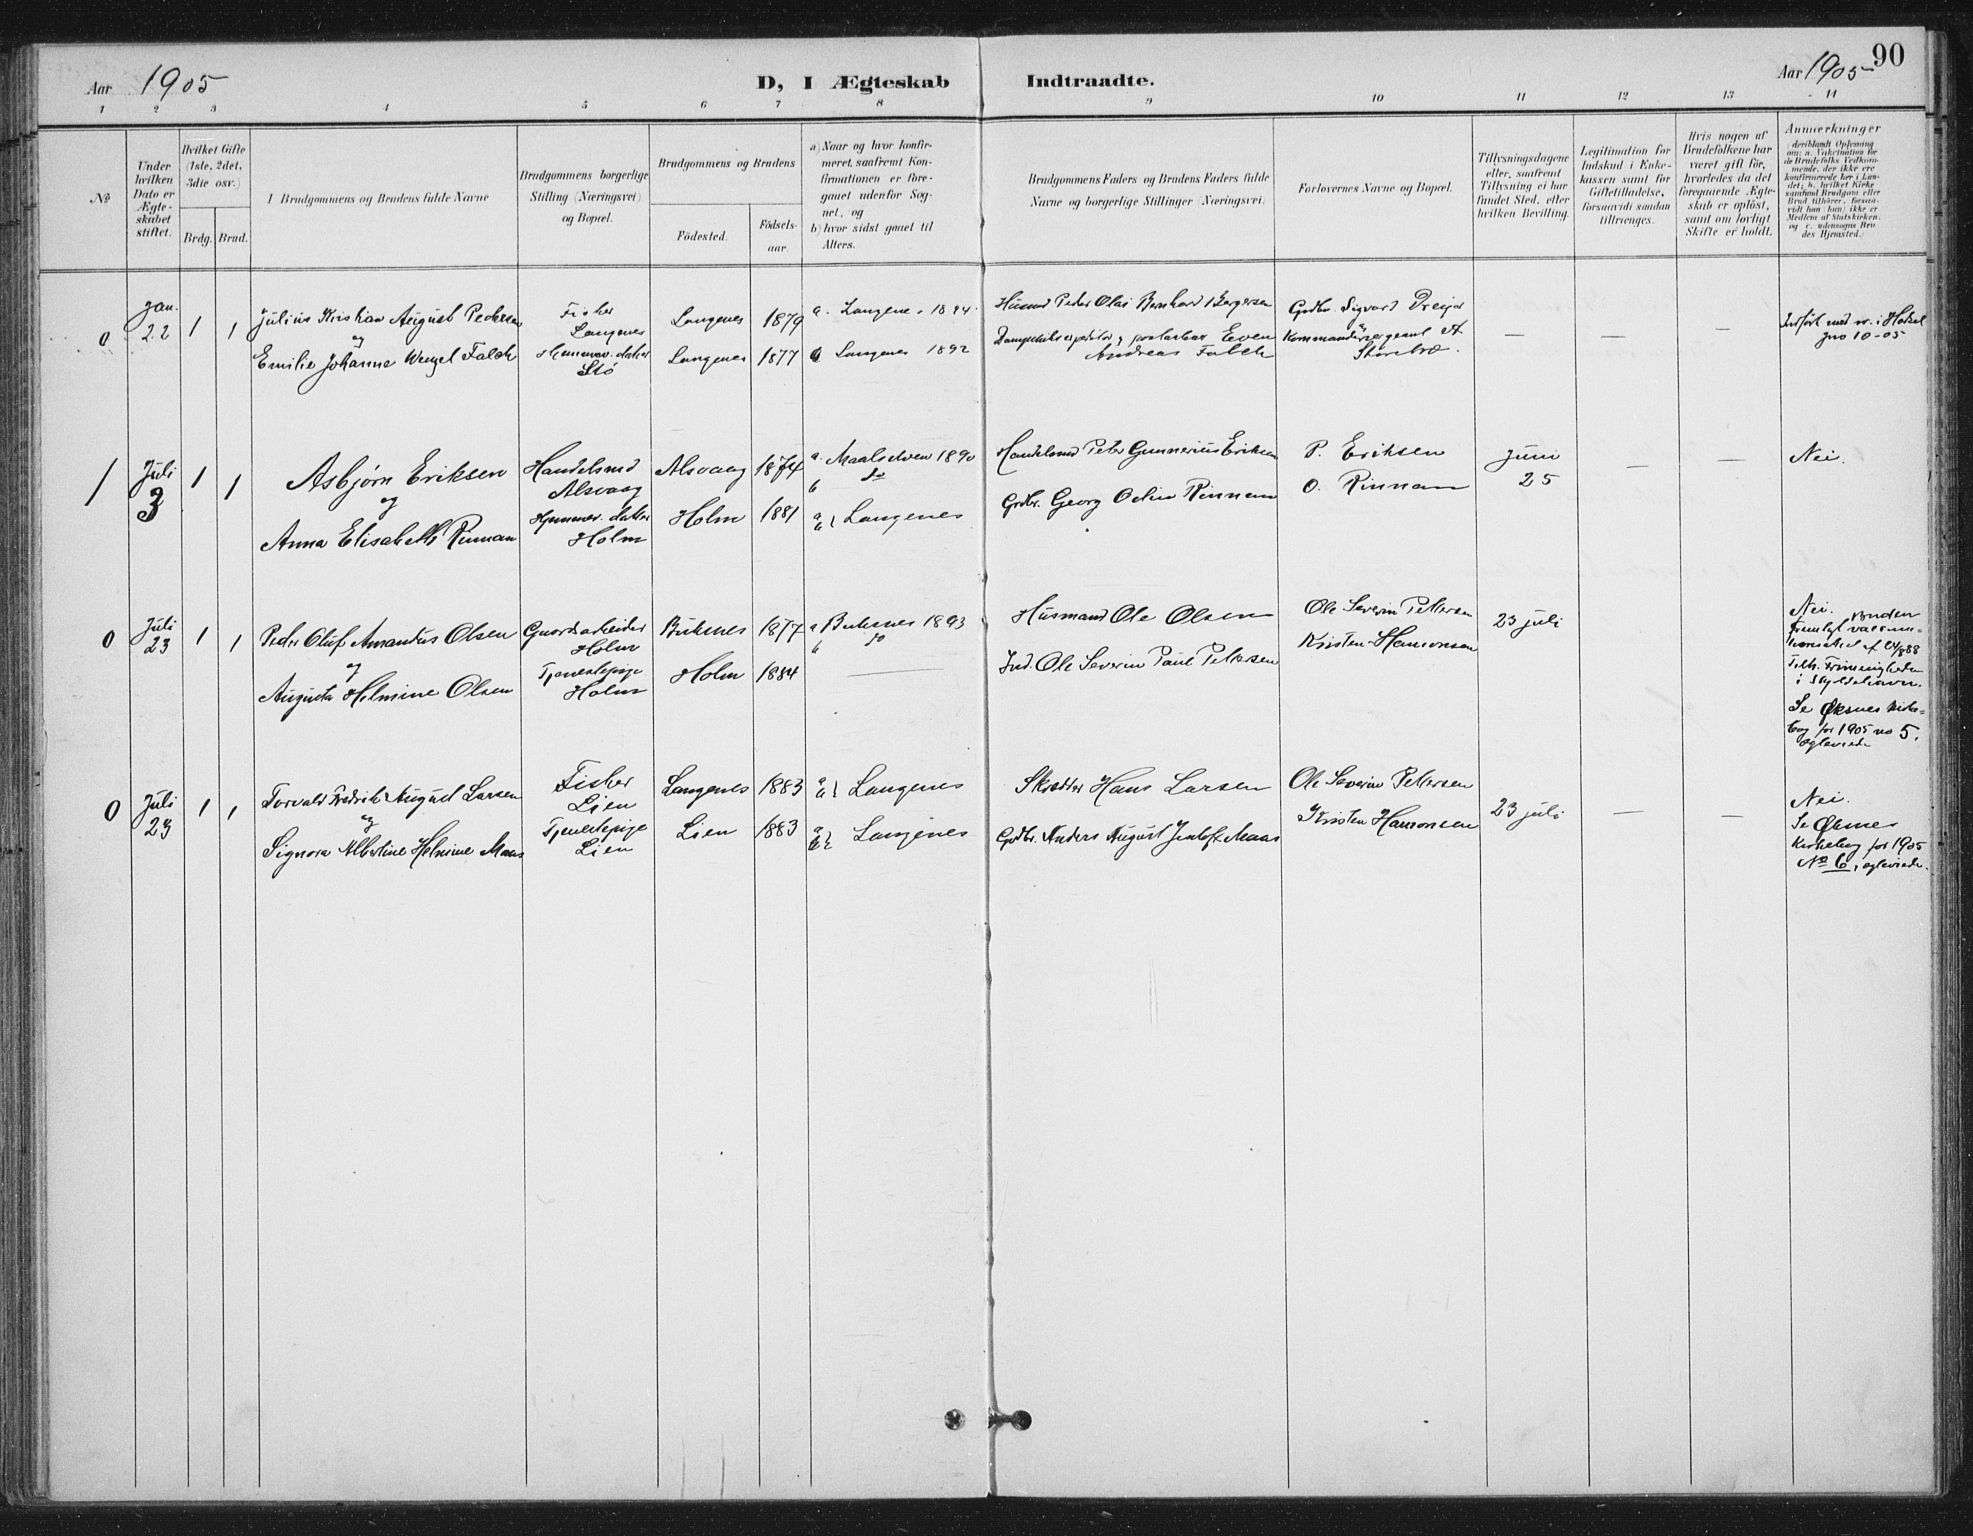 90
Aar 1905
D, I Ægteskab Indtraadte.
Aar 1905
1 2 3 4 5 6 7 8 9 10 11 12 13 14
No
Under hvilken Dato er Ægte-skabet stiftet.
Hvilket Gifte (1ste, 2det, 3die osv.)
Brdg. Brud.
I Brudgommens og Brudens fulde Navne
Brudgommens borgerlige Stilling (Næringsvei) og Bopæl.
Brudgommens og Brudens
Födested.
Födsels-aar.
a) Naar og hvor konfir-
meret, saafremt Kon-
firmationen er fore-
gaaet udenfor Sog-
net, og
b) hvor sidst gaaet til
Alters.
Brudgommens Faders og Brudens Faders fulde
Navne og borgerlige Stillinger (Næringsvei)
Forlovernes Navne og Bopæl.
Tillysningsdagene
eller, saafremt
Tillysning ei har
fundet Sted, efter
hvilken Bevilling.
Legitimation for
Indskud i Enke-
kassen samt for
Giftetilladelse,
forsaavidt saadan
tiltrænges.
Hvis nogen af
Brudefolkene har
været gift för,
hvorledes da det
foregaaende Ægte-
skab er oplöst,
samt om lovligt
Skifte er holdt.
Anmærkninger
(deriblandt Oplysning
om: a. Vakcination for
de Brudefolks Vedkom-
mende, der ikke ere
konfirmerede her i Lan-
det; b. hvilket Kirke
samfund Brudgom eller
Brud tilhörer, forsaa-
vidt han (hun) ikke er
Medlem af Statskirken.
og c. udensogns Bru
des Hjemsted.)
0 Jan. 22 1 1
Julius Kristian August Pedersen
og
Emilie Johanne Wengel Falch
Fisker
Langenes
Hjemmev. datter
Stö
Langenes 1879
Langenes 1877
a. Langene. 1894.
Langenes 1892
Husmd Peder Olai Bernhard Börgersen
Dampskibsexpeditör, postaabner Even
Andreas Falch
Grdbr. Sigvard Dreyer
Kommandörsergeant A.
— — —
Indfört med nr. i Hadsel
Jno 10-05
1 Juli 3 1 1
Asbjørn Eriksen
og
Anna Elisabeth Rinnan
Handelsmd
Alsvaag
Hjemmev. datter
Holm
Alsvaag 1874
Holm 1881
a. Maalselven 1890
b do
a b } Langenes
Handelsmd Peter Gunnerius Eriksen
Grdbr. Georg Odin Rinnan
P. Eriksen
O. Rinnan
Juni
25
— —
Nei.
0 Juli 23 1 1
Peder Oluf Amandus Olsen
og
Augusta Helmine Olsen
Gaardsarbeider
Holm
Tjenestepige
Holm
Buksnes 1877
Holm 1884
a Buksnes 1893
b do
Husmand Ole Olsen
Ind. Ole Severin Paul Pettersen
Ole Severin Pettersen
Kristen Hansonsen
23 juli
Nei. Bruden
fremlagt vaccina-
tionsattest af 24/8 88
Tilh. Frimenigheden
i
Se Øksnes Kirke-
bog for 1905 no 5.
0 Juli 23 1 1
Torvald Fredrik August Larsen
og
Signora Albertine Helmine Maas
Fisker
Lien
Tjenestepige
Lien
Langenes 1883
Lien 1883
a b } Langenes
a b } Langenes
Skrædder Hans Larsen
Grdbr. Anders August Jentoft Maas
Ole Severin Pettersen
Kristen Hansonsen
23 juli
— —
Nei.
Se Øksnes
Kirkebog for 1905
No 6,